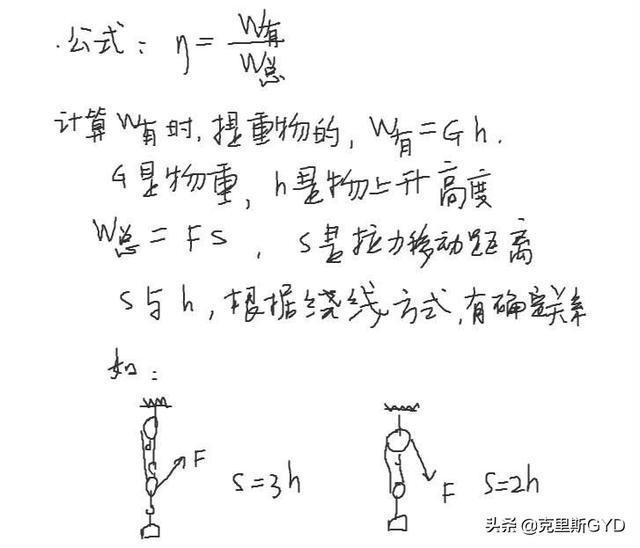 ·公式：η=W有/W总
计算W有时，提重物的，W有=Gh.
G是物重，h是物上升高度
W总=FS，S是拉力移动距离
S与h，根据绕线方式，有确定关系
如：
F S=3h F S=2h
头条@克里斯GYD